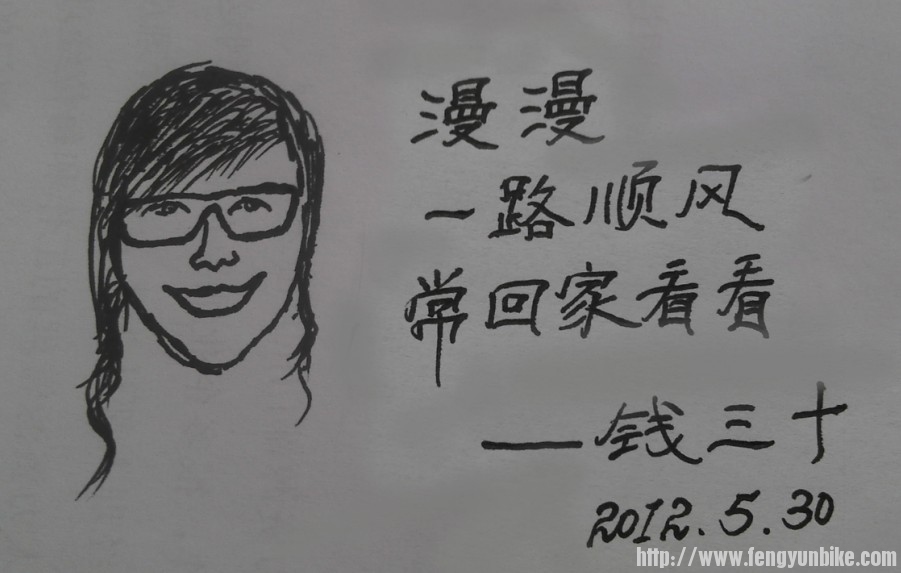 漫漫
一路顺风
常回家看看
——钱三十
2012.5.30
http://www.fengyunbike.com